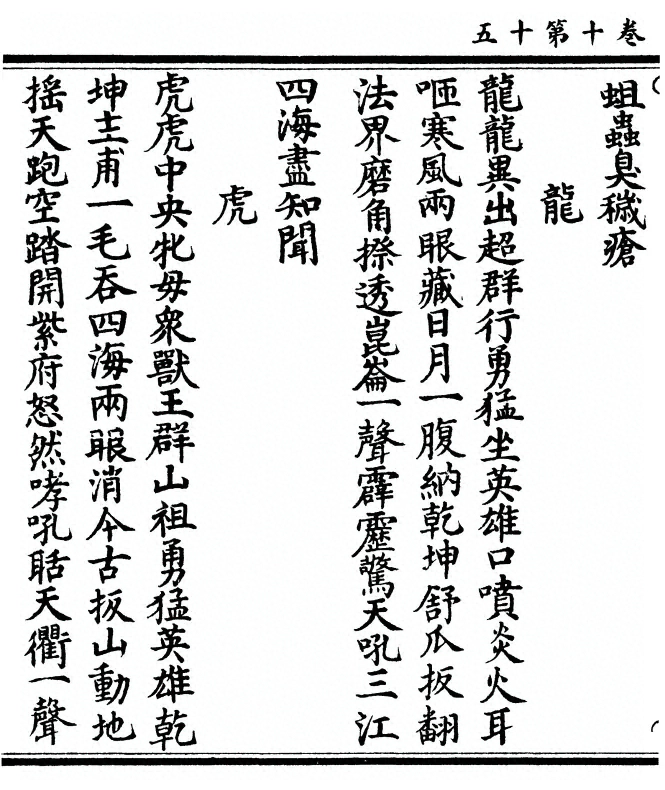 卷十第十五
蛆蟲臭穢瘡
龍
龍龍異出超群行勇猛坐英雄口噴炎火耳
咂寒風兩眼藏日月一腹納乾坤舒爪扳翻
法界磨角擦透崑崙一聲霹靂驚天吼三江
四海盡知聞
虎
虎虎中央牝毋衆獸王群山祖勇猛英雄乾
坤主甫一毛吞四海兩眼消今古扳山動地
搖天跑空踏開紫府怒然哮吼聒天衢一聲